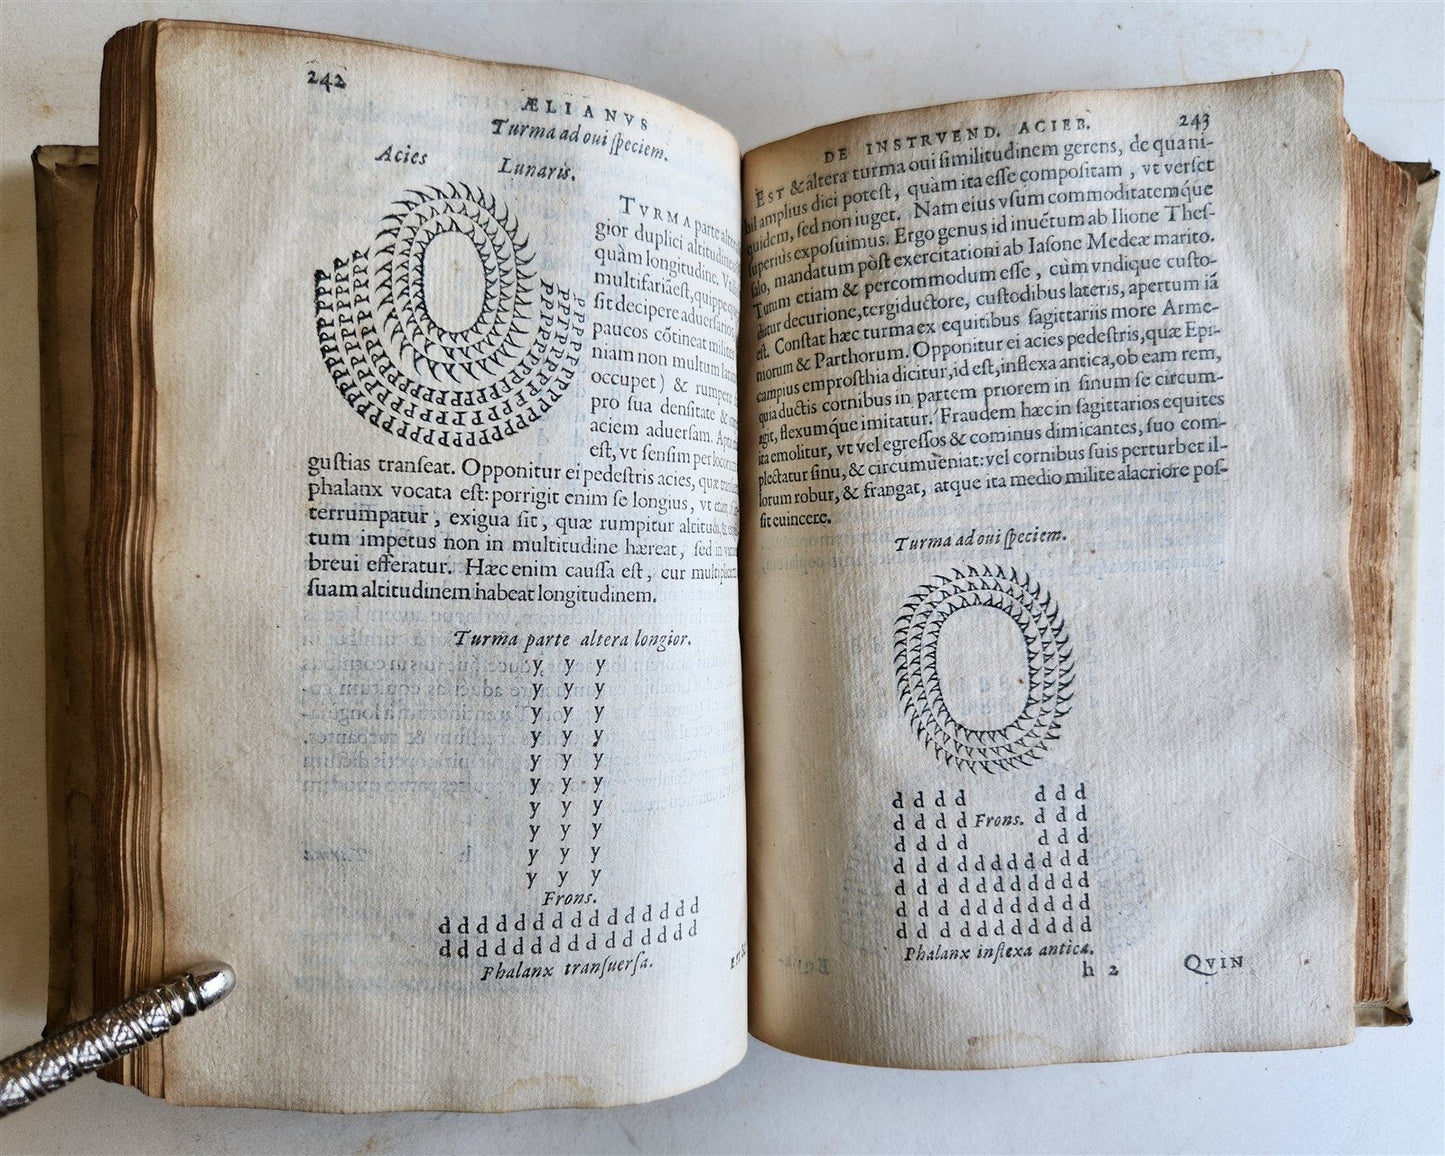 242
ÆLIANVS
Turma ad oui ſpeciem.
Acies Lunaris.
TVRMA parte alte
gior duplici altitudine
quàm longitudine. V
multifariã eſt, quippe
ſit decipere aduerſarios
paucos cõtineat milites
niam non multum lat
occupet) & rumpere
pro ſua denſitate &
aciem aduerſam. Apta
eſt, vt ſenſim per locorum
guſtias tranſeat. Opponitur ei pedeſtris acies, quæ
phalanx vocata eſt: porrigit enim ſe longius, vt
terrumpatur, exigua ſit, quæ rumpitur altitudo,
tum impetus non in multitudine hæreat, ſed in
breui efferatur. Hæc enim cauſſa eſt, cur
ſuam altitudinem habeat longitudinem.
Turma parte altera longior.
y y y
y y y
y y y
y y y
y y y
y y y
y y y
y y y
y y y
y y y
Frons.
d d d d d d d d d d d d d d
d d d d d d d d d d d d d d
Phalanx tranſuerſa.
DE INSTRVEND. ACIEB. 243
EST & altera turma oui ſimilitudinem gerens, de qua ni-
hil amplius dici poteſt, quàm ita eſſe compoſitam, vt verſet
quidem, ſed non iuget. Nam eius vſum commoditatemq́ue
ſuperiùs expoſuimus. Ergo genus id inuẽtum ab Ilione Theſ-
ſalo, mandatum pòſt exercitationi ab Iaſone Medeæ marito.
Tutum etiam & percommodum eſſe, cùm vndique cuſto-
diatur decurione, tergiductore, cuſtodibus lateris, apertum iã
eſt. Conſtat hæc turma ex equitibus ſagittariis more Arme-
niorum & Parthorum. Opponitur ei acies pedeſtris, quæ Epi-
campius emproſthia dicitur, id eſt, inflexa antica, ob eam rem,
quia ductis cornibus in partem priorem in ſinum ſe circum-
agit, flexumq́ue imitatur. Fraudem hæc in ſagittarios equites
ita emolitur, vt vel egreſſos & cominus dimicantes, ſuo com-
plectatur ſinu, & circumueniat: vel cornibus ſuis perturbet il-
lorum robur, & frangat, atque ita medio milite alacriore poſ-
ſit euincere.
Turma ad oui ſpeciem.
d d d d d d d
d d d d Frons. d d d
d d d d d d d
d d d d d d d d d d
d d d d d d d d d d
d d d d d d d d d d
d d d d d d d d d d
Phalanx inflexa antica.
h 2 QVIN